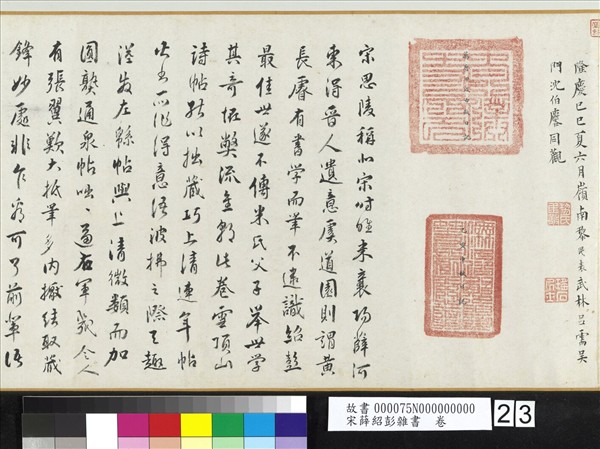 隆慶己巳夏六月嶺南黎民表武林呂需吳
門沈伯麐同觀
宋思陵稱北宋時唯米襄陽薛河
東得晉人遺意虞道園則謂黃
長睿有書學而筆不逮識紹彭
最佳世遂不傳米氏父子舉世學
其奇怪弊流金朝此卷雲頂山
詩帖能以拙藏巧上清連年帖
得意語波掃之際天趣
溢發左綿帖與上清微類而加
圓熟通泉帖咄咄逼右軍幾令人
有張翼歎大抵筆多內擫結取藏
鋒妙處非乍看可了前輩語
故書 000075N000000000
宋薛紹彭雜書 卷
23